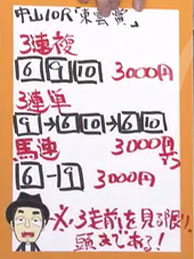 中山10R「東雲賞」
3連複
6 9 10 3000円
3連単
9→6 10→6 10
馬連 3000円ずつ
6-9 3000円
※3走前を見る限り、
頭まである!